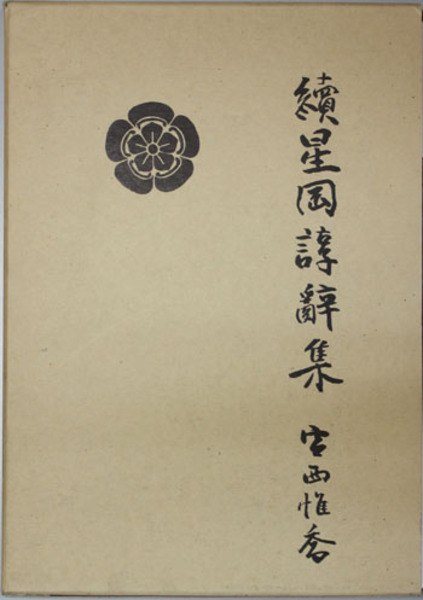 續星岡諄辭集
宮西惟喬